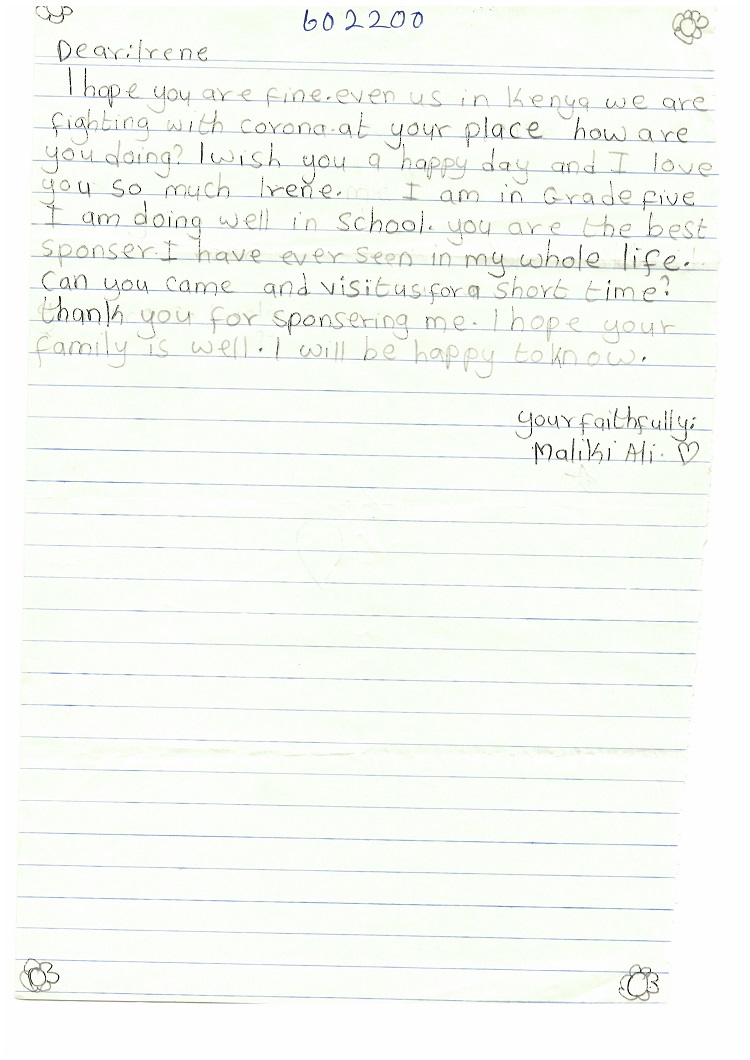 602200
Dear:Irene
I hope you are fine.even us in Kenya we are
fighting with corona.at your place how are
you doing? I wish you a happy day and I love
you so much Irene. I am in Grade five
I am doing well in school. you are the best
sponser.I have ever seen in my whole life.
Can you came and visit us for a short time?
thank you for sponsering me. I hope your
family is well. I will be happy to know.
your faithfully;
Maliki Ali.